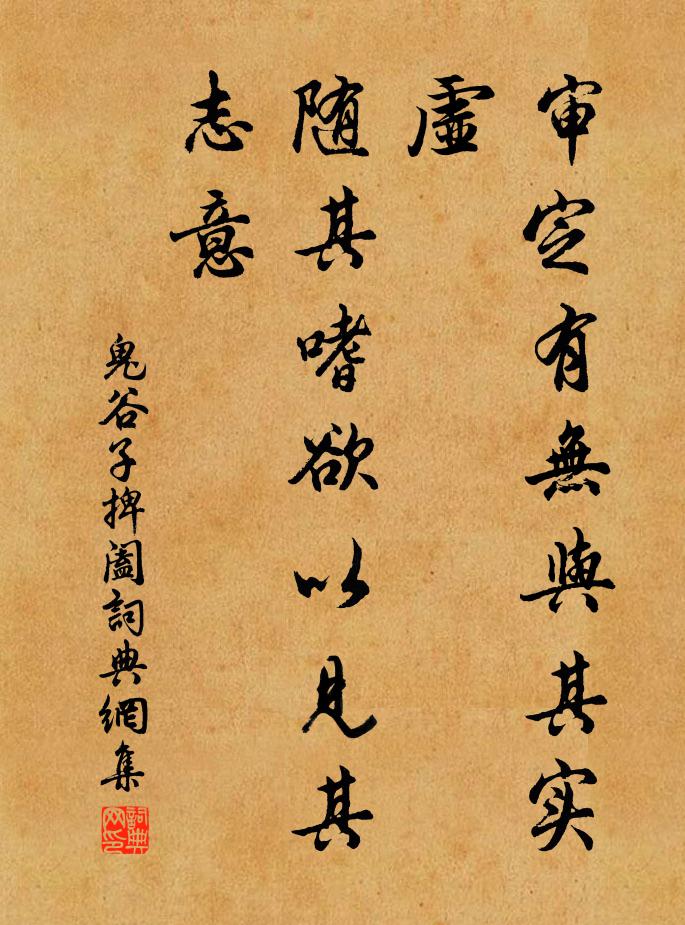 审定有無與其实
虛
随其嗜欲以見其
志意
鬼谷子捭阖詞典網集
詞典
网印